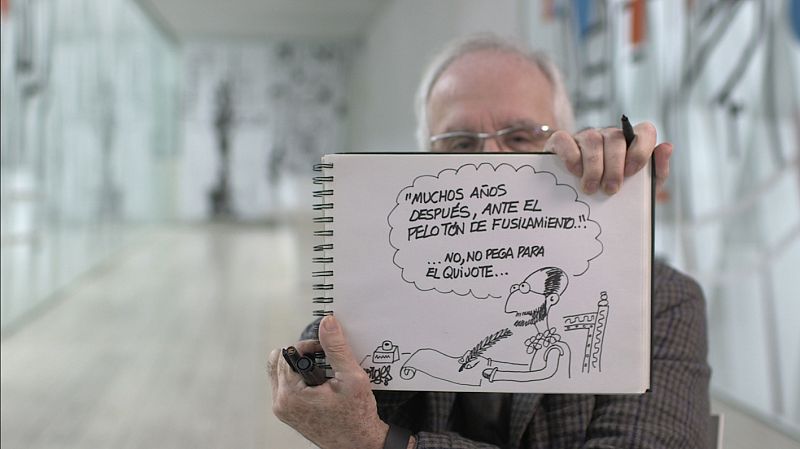 "MUCHOS AÑOS
DESPUÉS, ANTE EL
PELOTÓN DE FUSILAMIENTO..."
...NO, NO PEGA PARA
EL QUIJOTE...